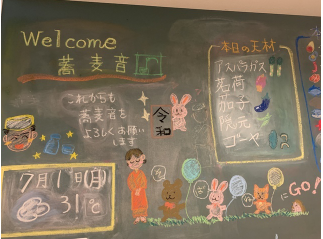 Welcome
蕎麦音
これからも
蕎麦音を
よろしくお願い
します
令和
本日の天材
アスパラガス
茗荷
茄子
隠元
ゴーヤ
7月1日(月)
31℃
GO!